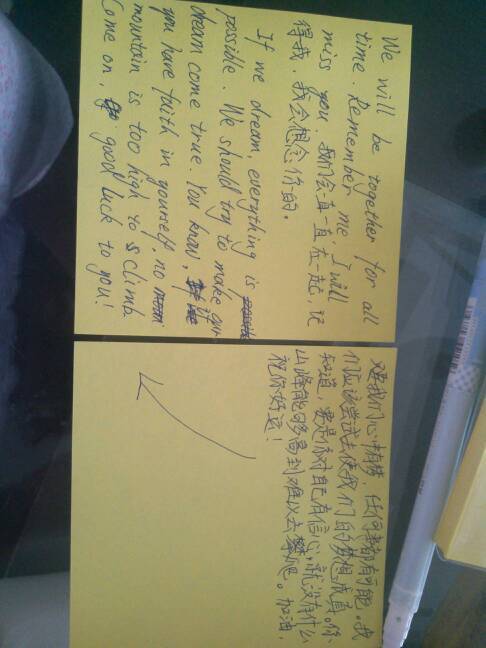 We will be together for all
time. Remember me, I will
miss you 我们会一直一直在一起,记
得我,我会想念你的。
If we dream, everything is
possible. We should try to make our
dream come true. You know, if
you have faith in yourself, no
mountain is too high to climb
Come on, good luck to you!
要我们心中有梦,任何事都有可能。我
们应该尝试去使我们的梦想成真。你
知道,要是你对自己有信心,就没有什么
山峰能够高到难以去攀爬。加油,
祝你好运!